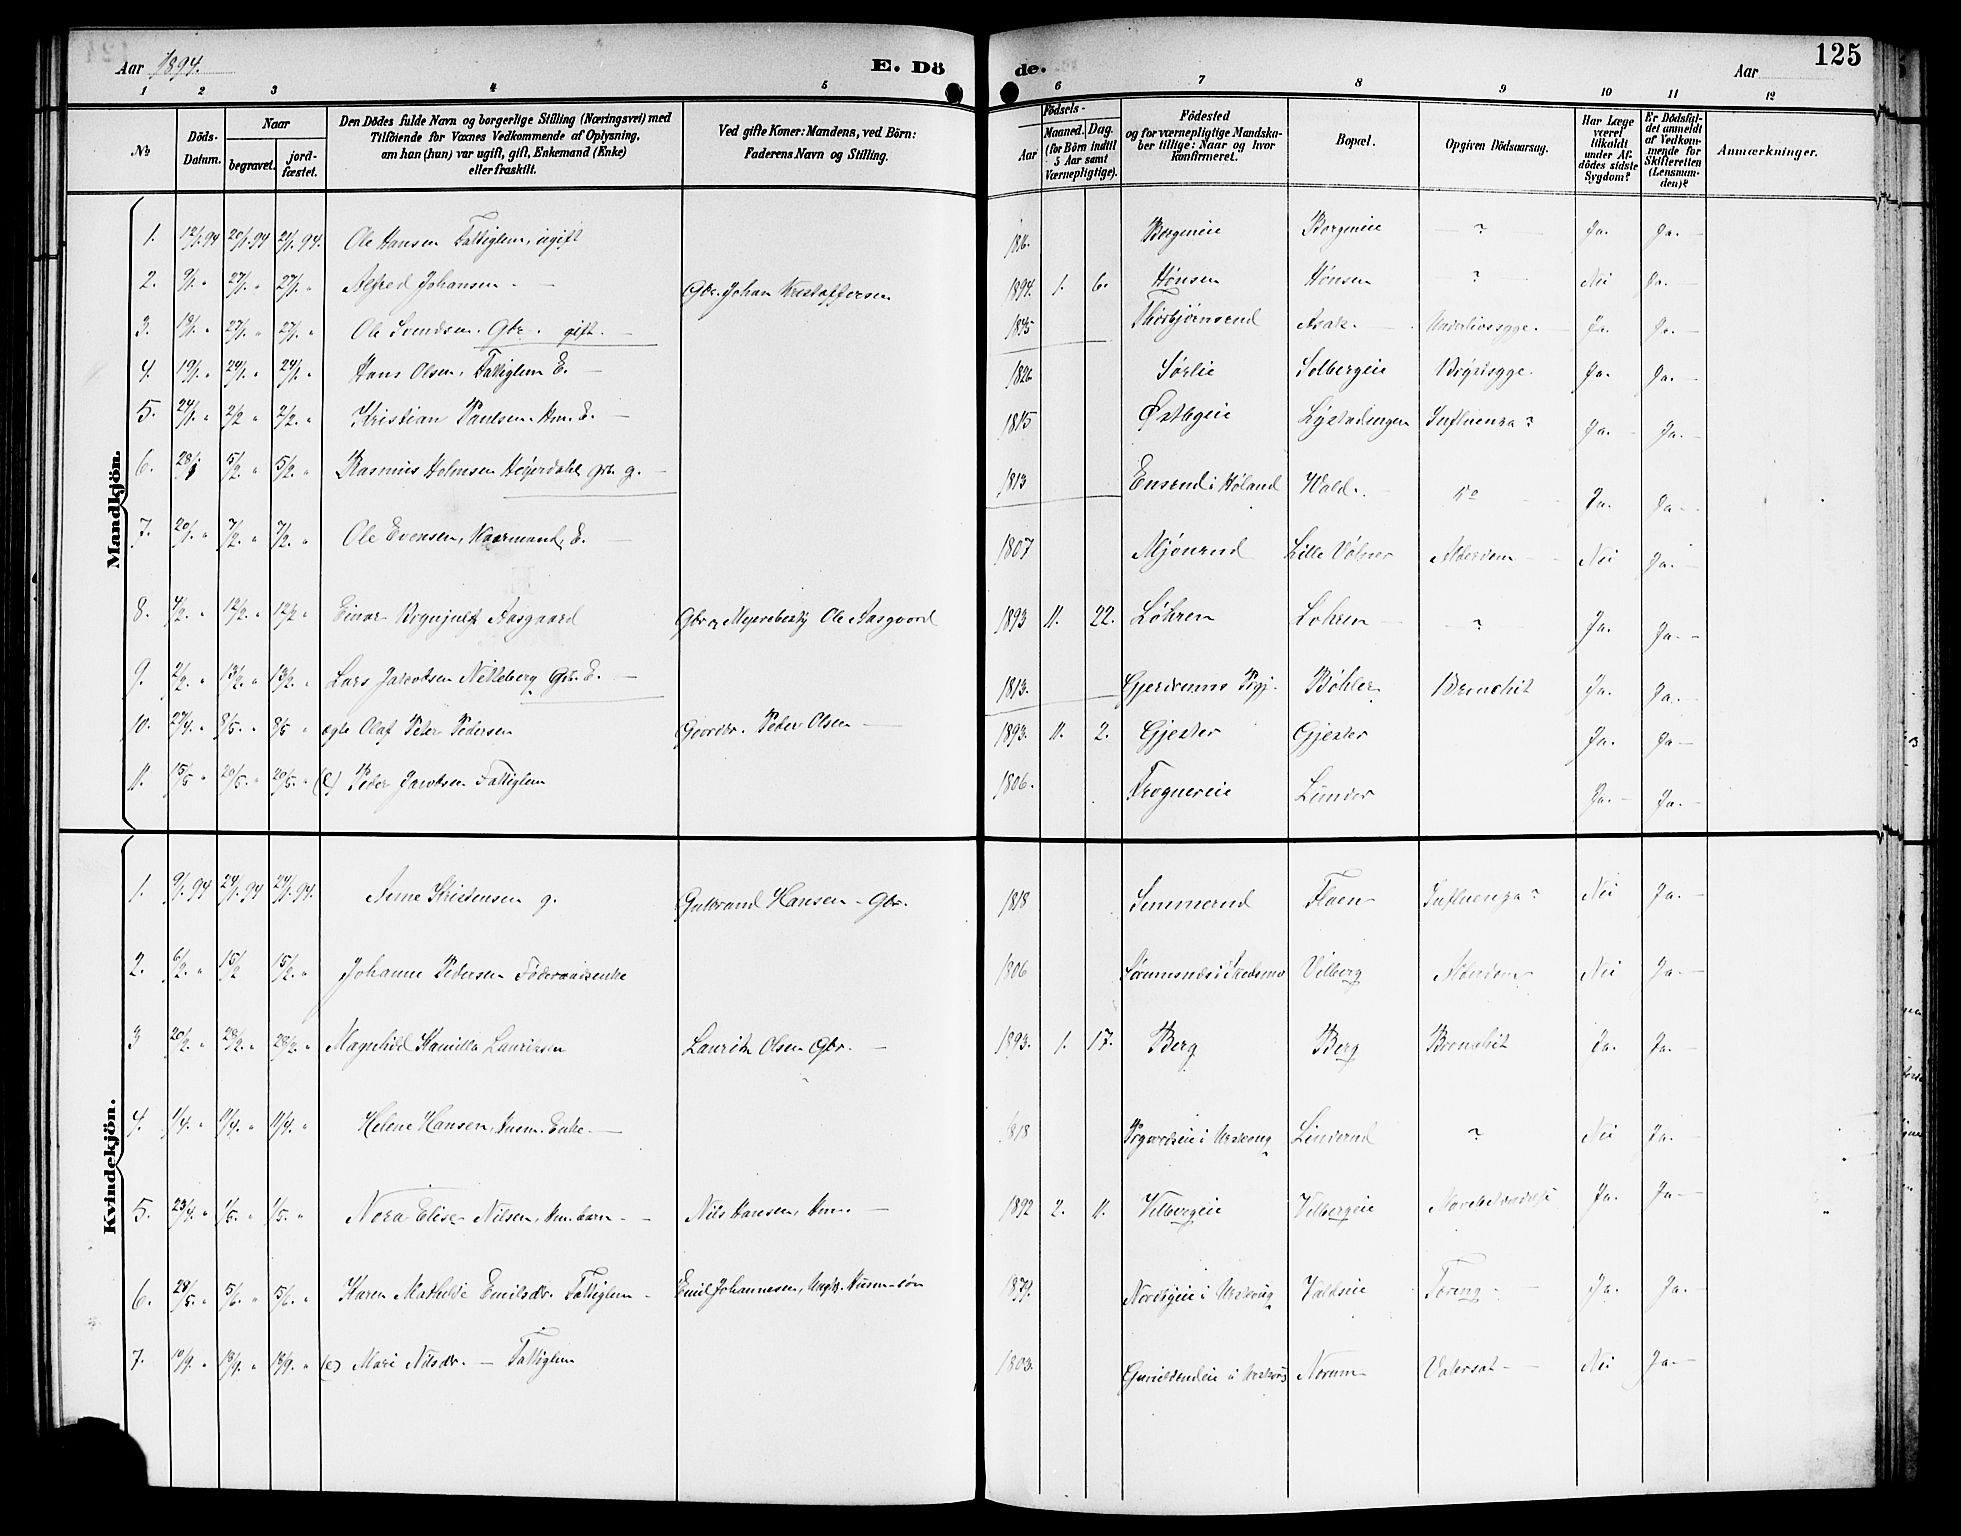 Aar 1894. E. Dö de. Aar 125
1 2 3 4 5 6 7 8 9 10 11 12
No
Döds-Datum.
Naar begravet. jord-fæstet.
Den Dödes fulde Navn og borgerlige Stilling (Næringsvei) med Tilföiende for Voxnes Vedkommende af Oplysning, om han (hun) var ugift, gift, Enkemand (Enke) eller fraskilt.
Ved gifte Koner: Mandens, ved Börn: Faderens Navn og Stilling.
Födsels-
Aar
Maaned. Dag. (for Börn indtil 5 Aar samt Værnepligtige).
Födested og for værnepligtige Mandska-ber tillige: Naar og hvor konfirmeret.
Bopæl.
Opgiven Dödsaarsag.
Har Læge været tilkaldt under Af-dödes sidste Sygdom?
Er Dödsfal-det anmeldt af Vedkom-mende for Skifteretten (Lensman-den)?
Anmærkninger.
Mandkjön.
1. 12/1.94 20/1.94 21/1.94. Ole Hansen Fattiglem, ugift Borgeneie Borgeneie — ? — Ja. Ja. —
2. 9/1. " 27/1. " 27/1. " Alfred Johansen — Gbr. Johan Kristoffersen 1894. 1. 6. Hønsen Hønsen ? Nei Ja. —
3. 19/1. " 27/1. " 27/1. " Ole Svendsen Gbr. gift. — 1845 Thorbjørnsrud Asak — Underlivssyge. Ja. Ja. —
4. 19/1. " 24/1. " 24/1. " Hans Olsen, Fattiglem E. — 1826 Sørlie Solbergeie Brystsyge. Ja. Ja. —
5. 24/1. " 2/2. " 2/2. " Kristian Paulsen Hm. E. — 1815 Østbyeie Lystadengen Influenza? Ja. — Ja. —
6. 28/1 5/2. " 5/2. " Rasmus Holmsen Heyerdahl gbr. g. — 1813 Ensrud i Høland Wald. — do Ja. Ja. —
7. 20/1. " 7/2. " 7/2. " Ole Evensen, Kaarmand, E. — 1807 Mjønrud Lille Vølner Alderdom — Nei Ja. —
8. 4/2. " 12/2. " 12/2 " Einar Aasgaard Gbr og Meieribesty Ole Aasgaard 1893 11. 22. Løhren Lohren — ? Ja. Ja. —
9. 2/2. " 13/2. " 13/2. " Lars Jacobsen Nitteberg Gbr. E. — 1813. Gjerdrums Prgj. Bøhler Bronchit Ja. Ja. —
10. 27/4. " 8/5. " 8/5 " ægte Olaf Peter Pedersen Gaardbr. Peder Olsen — 1893. 11. 2. Gjester Gjester Ja. Ja —
11. 15/5 " 20/5. " 20/5. " (e) Peder Jacobsen Fattiglem 1806. Frognereie Linder Ja. — Ja. —
Kvindekjön.
1. 9/1. 94 24/1.94 24/1.94. Anne Kristensen g. Gulbrand Hansen — Gbr. 1818 Simmerud Flaen Influenza? Nei Ja. —
2. 6/2. " 15/2 15/2. " Johanne Pedersen Føderaadsenke 1806 Sørumsnæs i Skedsmo Vilberg Alderdom Nei Ja. —
3 20/2. " 28/2. " 28/2. " Magnhild Kamilla Lauritsen Lauritz Olsen Gbr. — 1893. 1. 17. Berg Berg Bronchit Ja. Ja. —
4. 1/4. " 11/4. " 11/4. " Helene Hansen, Enke — 1818 i Urskoug Linderud ? Nei Ja. —
5. 23/4. " 1/5. " 1/5. " Nora Elise Nilsen, Hm. barn — Nils Hansen, Hm. — 1892 2. 11. Vilbergeie Vilbergeie Ja. Ja —
6. 28/5. " 5/6. " 5/6. " Karen Mathilde Emilsdr. Fattiglem — Emil Johannesen, Ungk. Husm. søn Nordbyeie i Urskoug Valdseie Tæring — Ja. Ja. —
7. 10/9. " 18/9. " 18/9. " (e) Mari Nilsdr. — Fattiglem 1803. i Urskoug Norum Vatersot — Nei Ja —